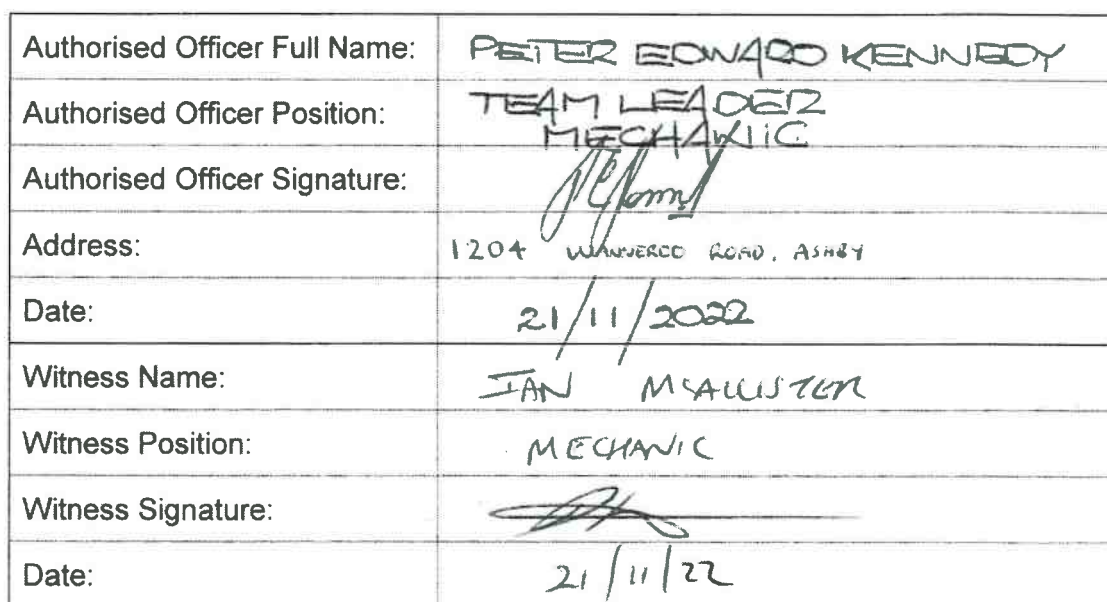 Authorised Officer Full Name: PETER EDWARD KENNEDY
Authorised Officer Position: TEAM LEADER
MECHANIC
Authorised Officer Signature:
Address: 1204 WANNEROO ROAD, ASHBY
Date: 21/11/2022
Witness Name: IAN MCALLISTER
Witness Position: MECHANIC
Witness Signature:
Date: 21/11/22